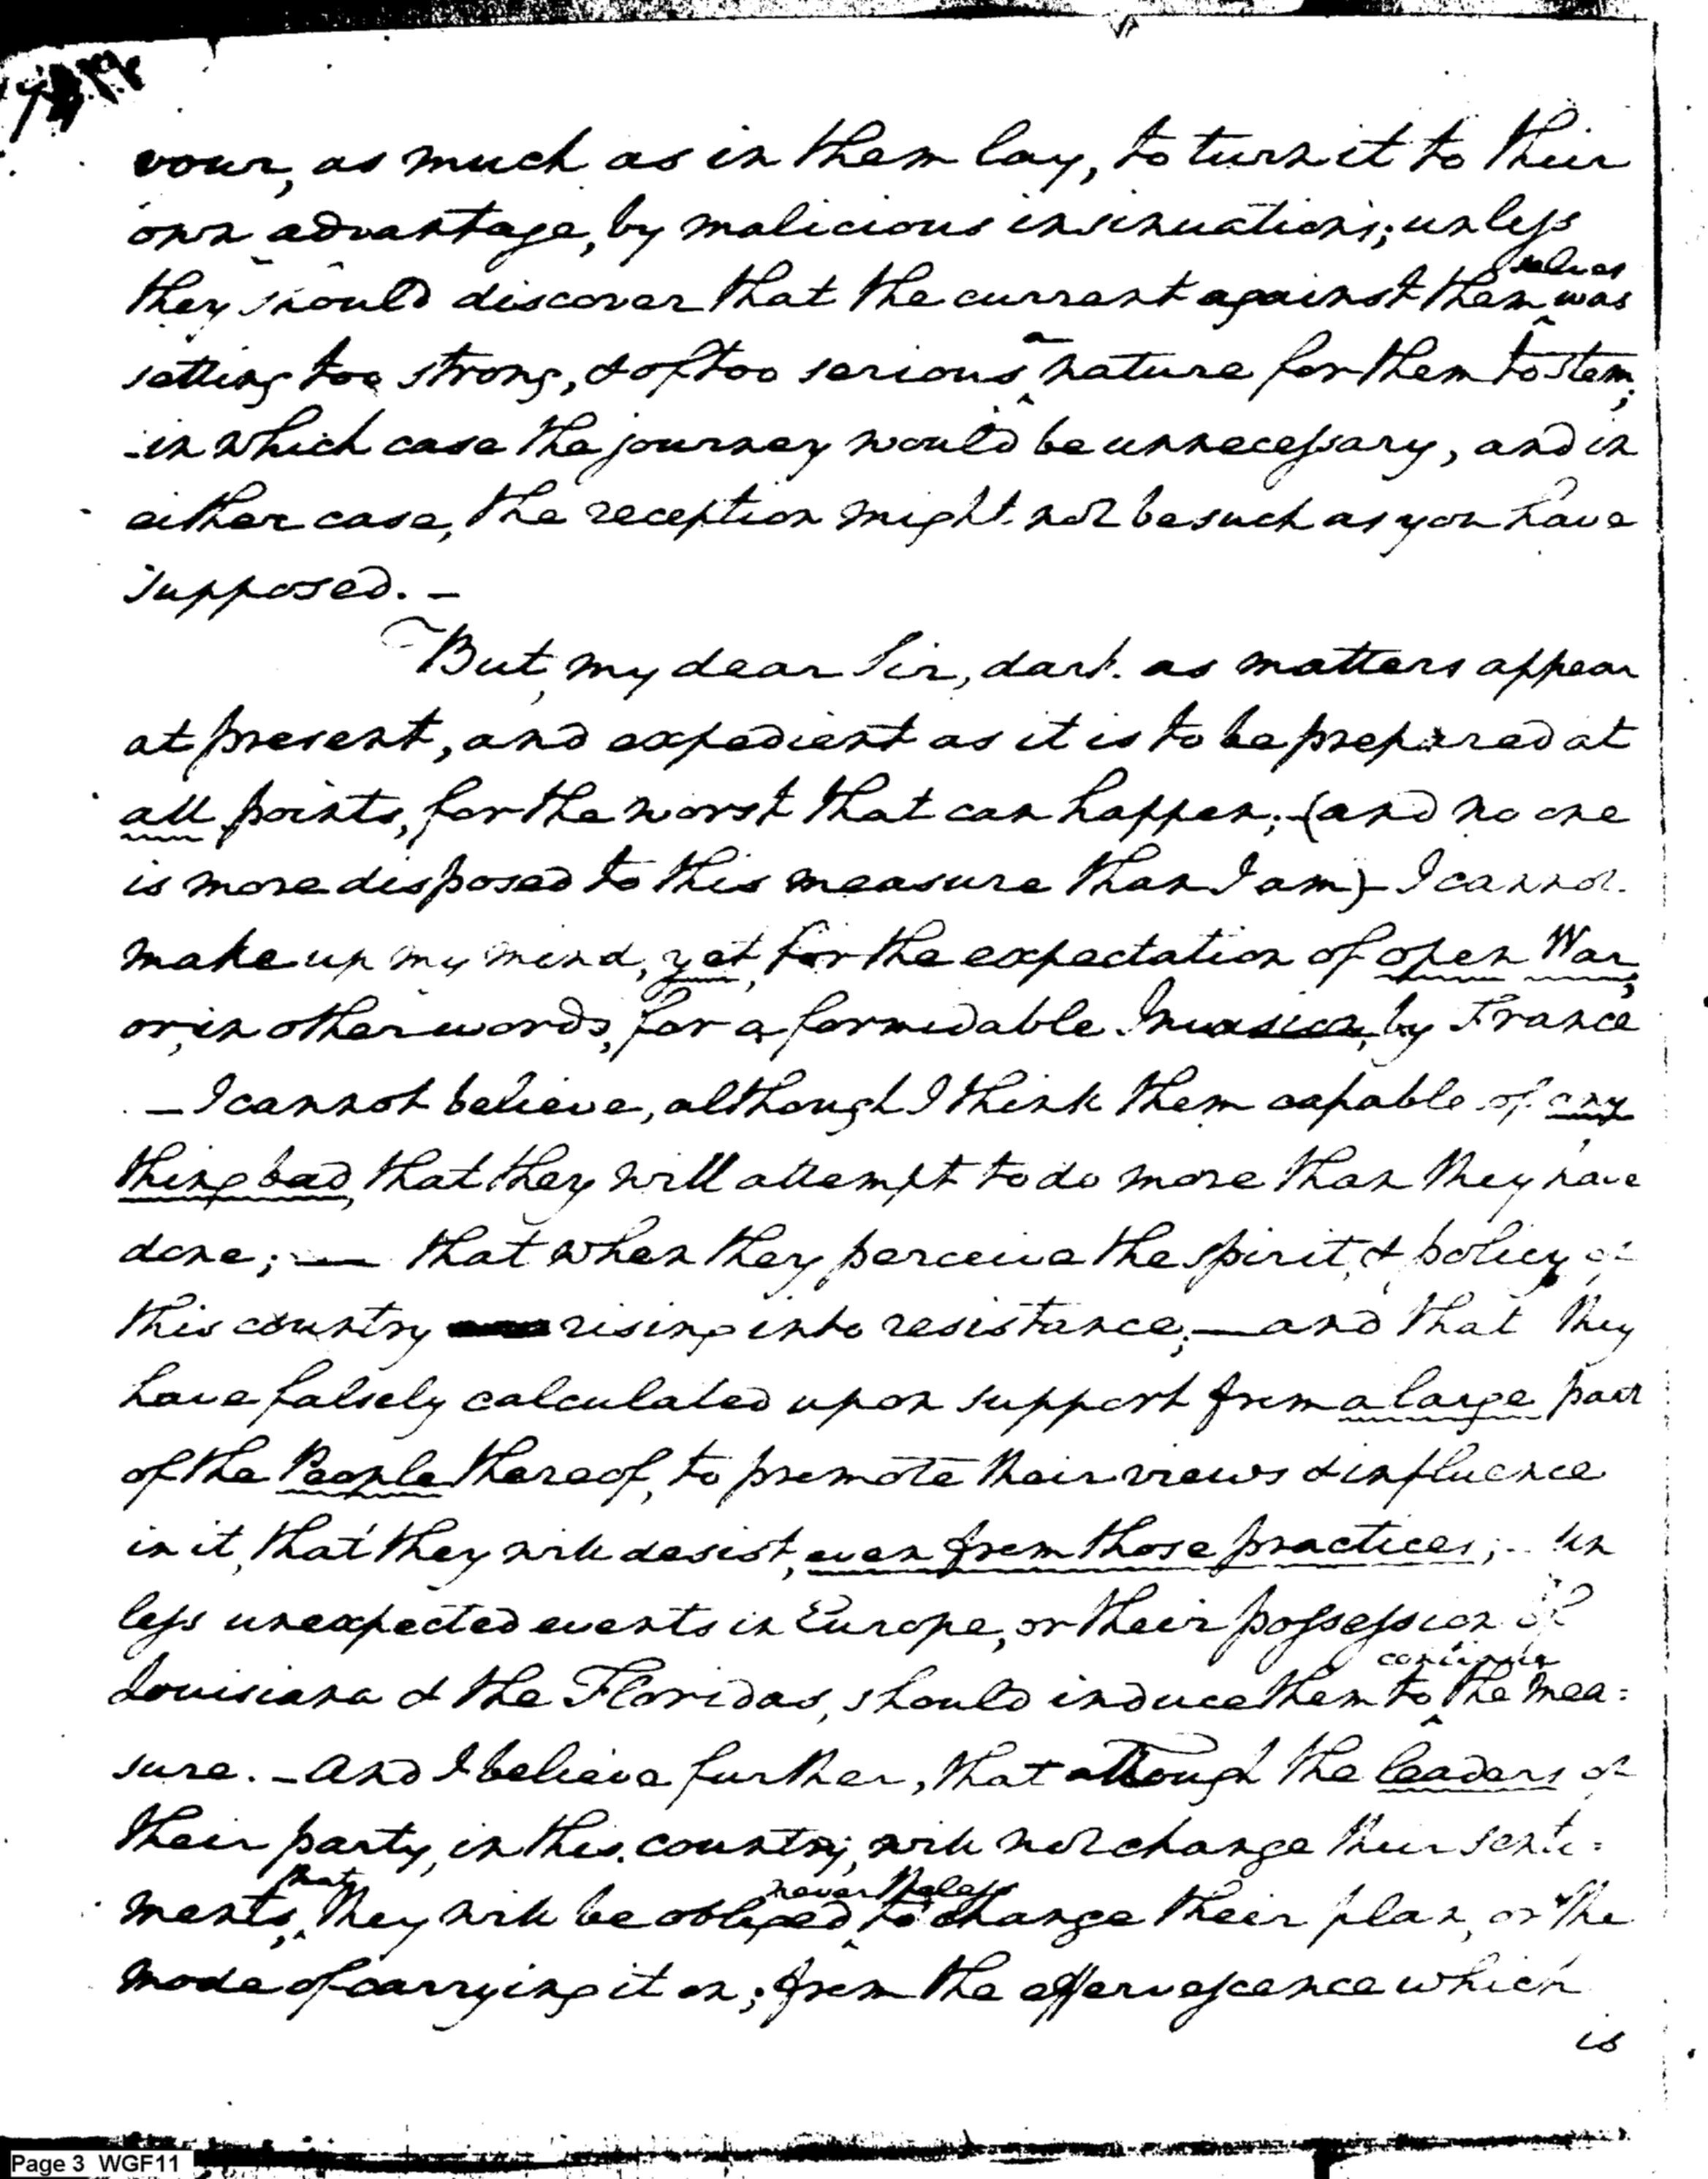 vour, as much as in them lay, to turn it to their
own advantage, by malicious insinuations; unless
they should discover that the current against themselves was
setting too strong, & of too serious a nature for them to stem;
in which case the journey would be unnecessary, and in
either case, the reception might not be such as you have
supposed. —
But, my dear Sir, dark as matters appear
at present, and expedient as it is to be prepared at
all points, for the worst that can happen; (and no one
is more disposed to this measure than I am) – I cannot
make up my mind, yet, for the expectation of open War;
or, in other words, for a formidable Invasion, by France
— I cannot believe, although I think them capable of any
thing bad, that they will attempt to do more than they have
done; — that when they perceive the spirit, & policy of
this country rising into resistance; — and that they
have falsely calculated upon support from a large part
of the People thereof, to promote their views & influence
in it, that they will desist, even from those practices; – un
less unexpected events in Europe, or their possession of
Louisiana & the Floridas, should induce them to continue the mea=
sure. – And I believe further, that although the leaders of
their party, in this country, will not change their senti=
ments, that they will be obliged nevertheless to change their plan, or the
mode of carrying it on; from the effervescence which
is
Page 3 WGF11